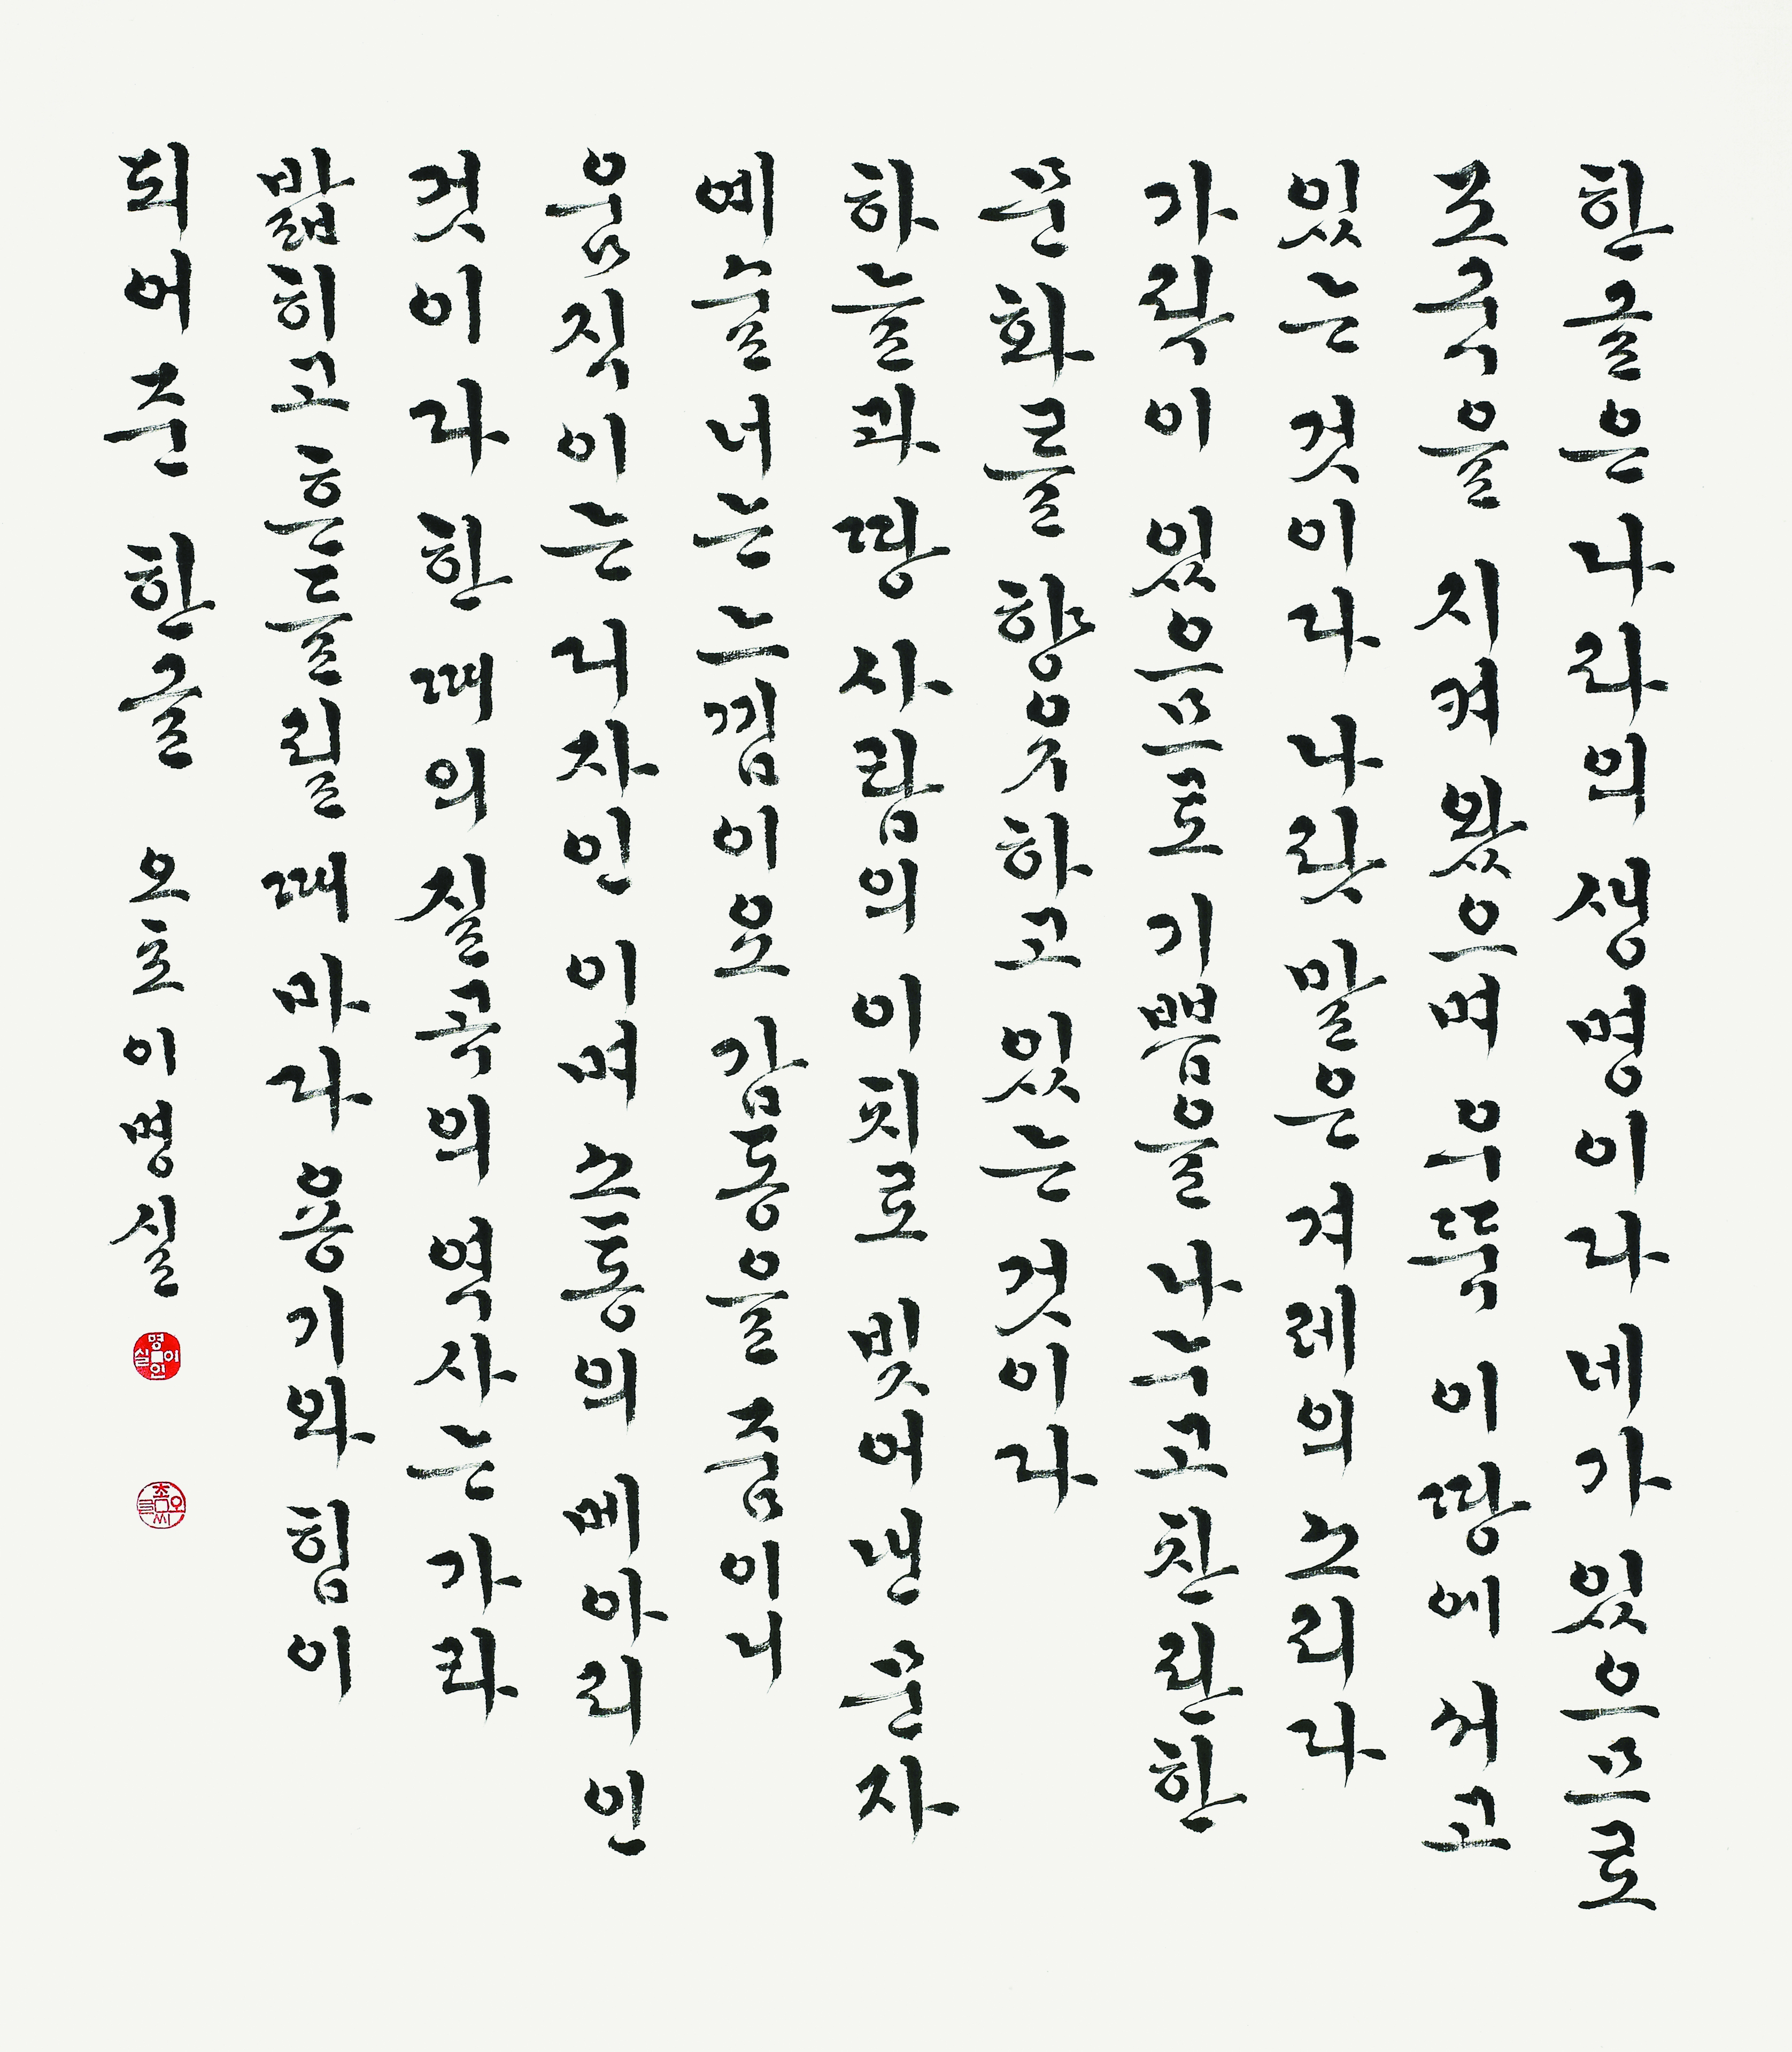 한글은 나라의 생명이라 네가 있으므로
조국을 지켜 왔으며 우뚝 이 땅에 서고
있는 것이라 나랏말은 겨레의 소리라
가락이 있으므로 기쁨을 나누고 찬란한
문화를 향유하고 있는 것이라
하늘과 땅 사람의 이치로 빚어낸 문자
예술 너는 느낌이요 감동을 줌이니
움직이는 디자인이며 소통의 메아리인
것이라 한때의 질곡의 역사는 가라
밟히고 흔들릴 때마다 용기와 힘이
되어준 한글 오호 이명실